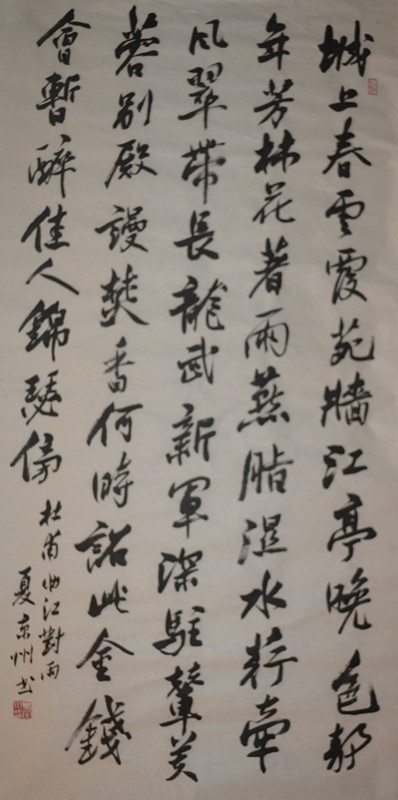 城上春雲覆苑牆江亭晚色靜
年芳林花著雨燕脂湿水荇牽
風翠帶長龍武新軍深駐輦芙
蓉別殿謾焚香何時詔此金錢
會暫醉佳人錦瑟傍
杜甫曲江對雨
夏京州书